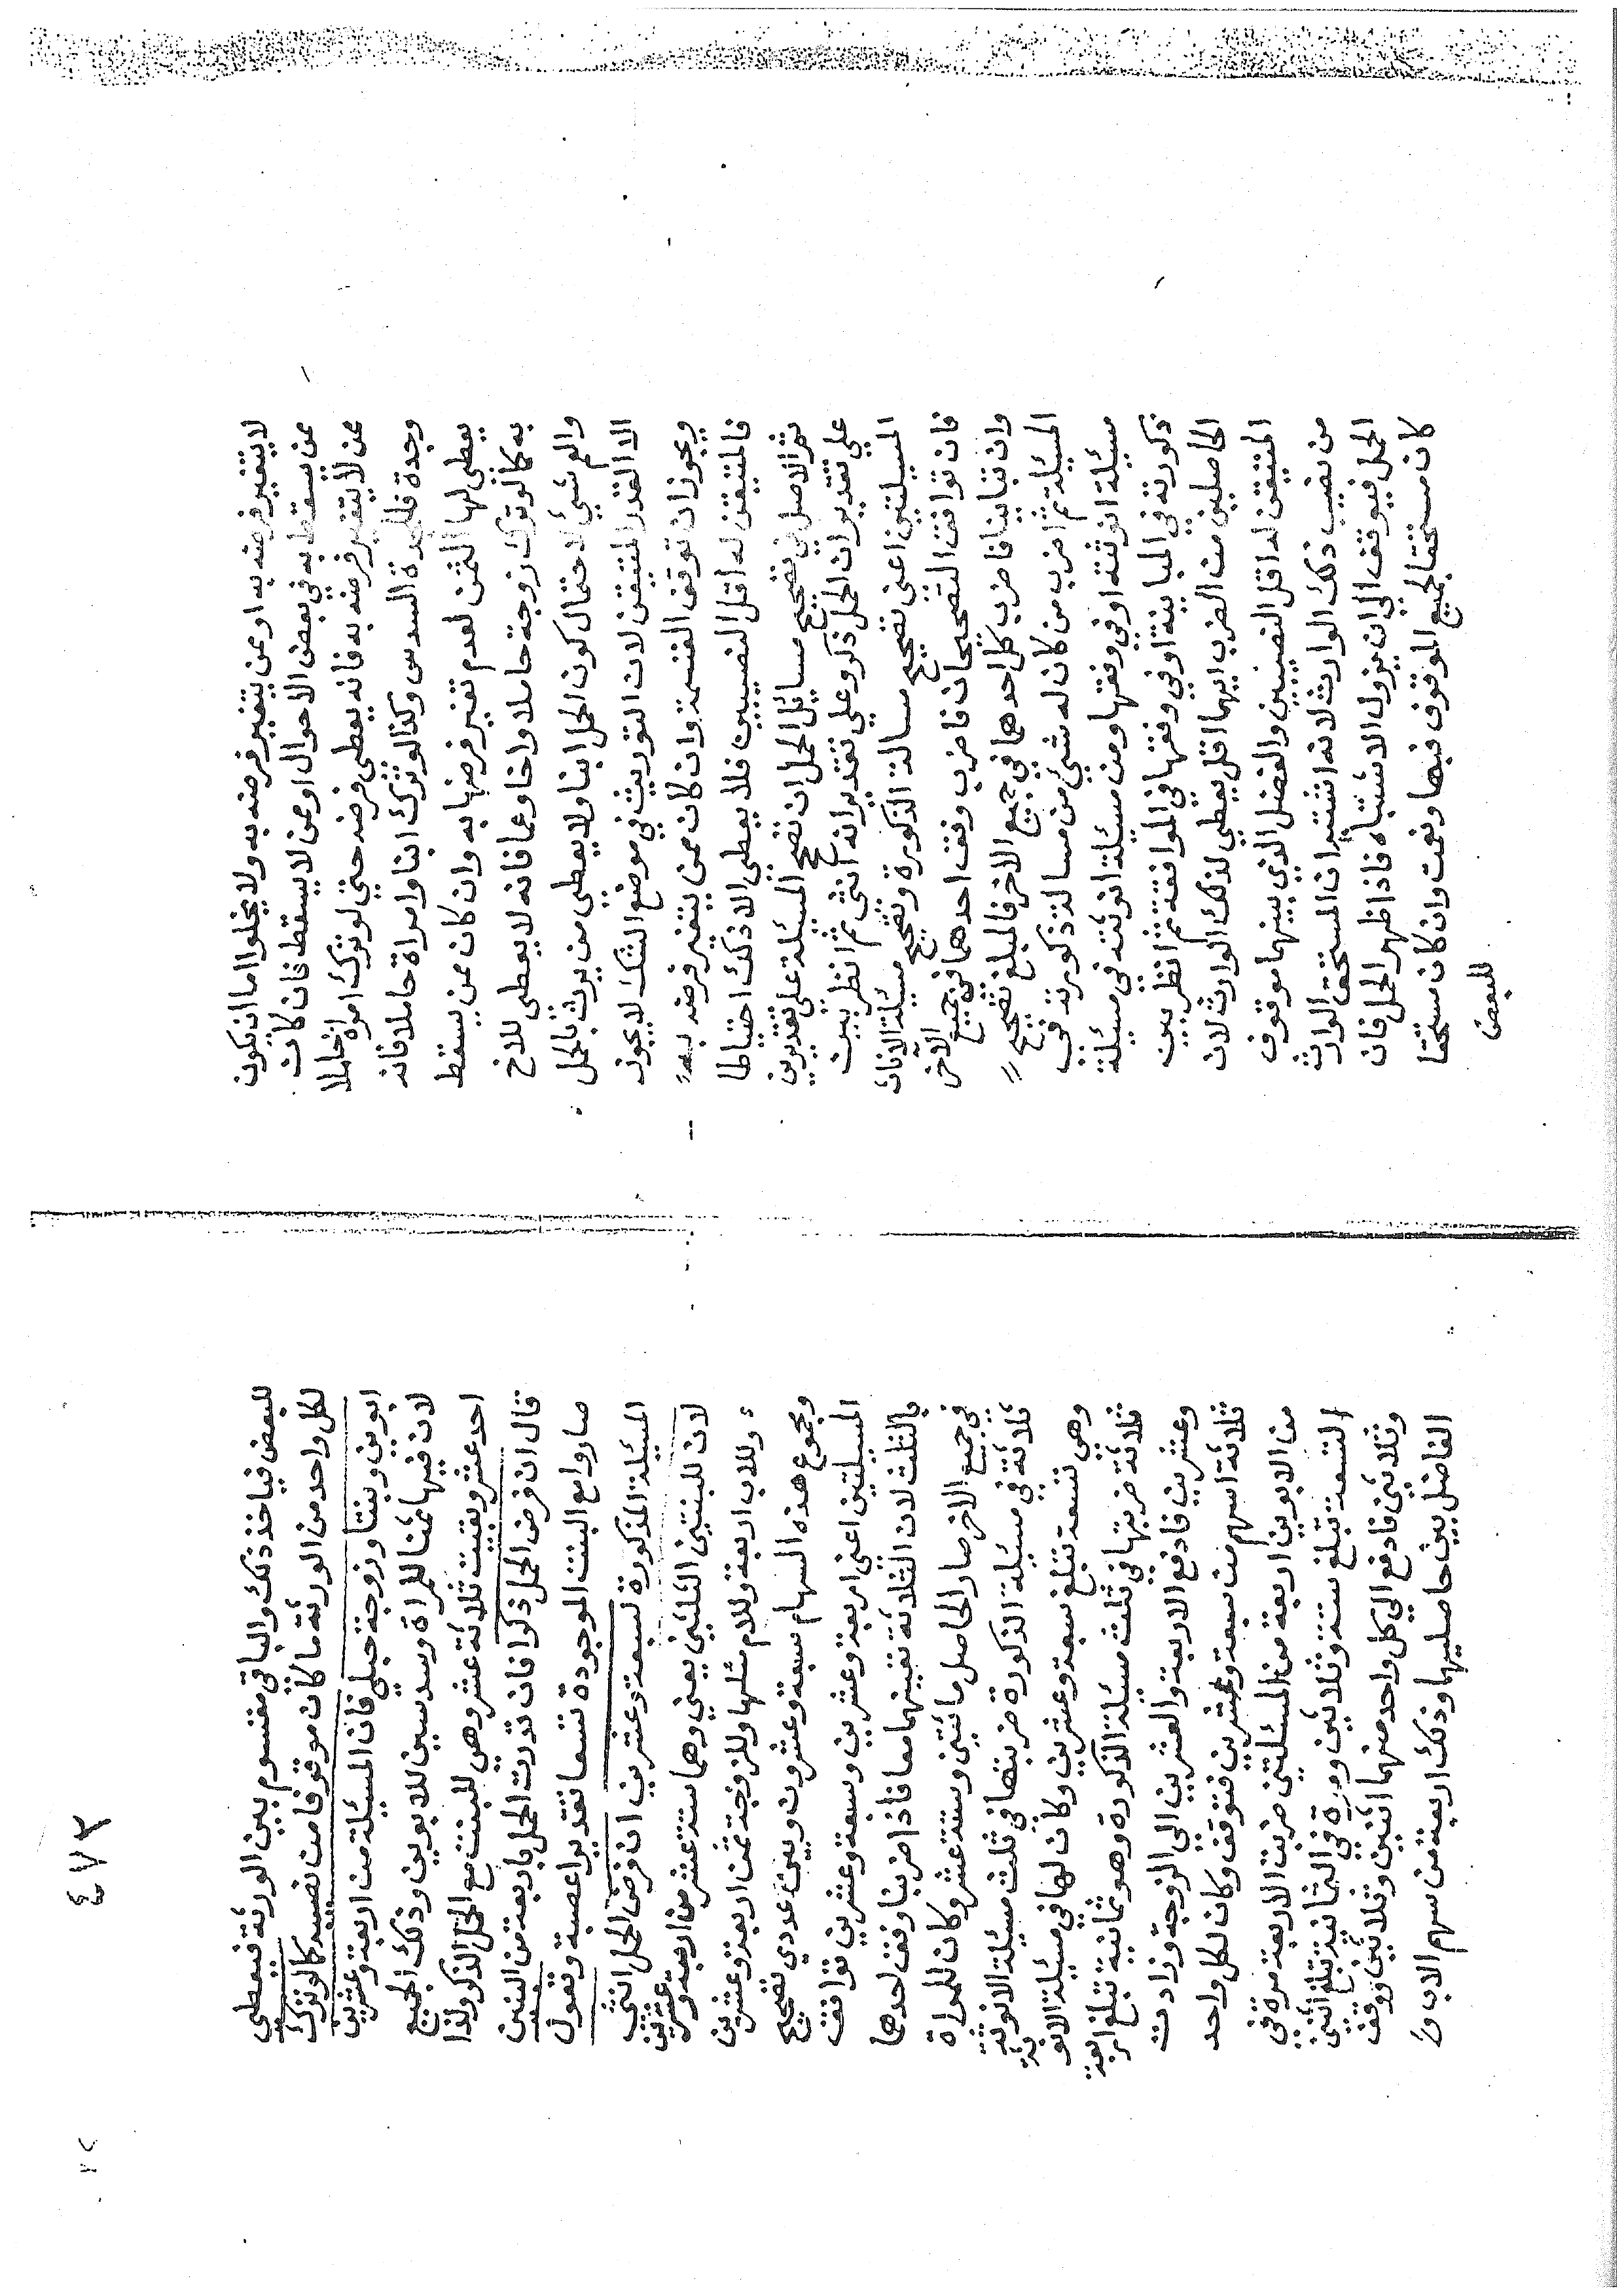 لا يتغير فرضه به او ممن يتغير فرضه به ولا يخلوا اما ان يكون
ممن يسقط به في بعض الاحوال او ممن لا يسقط فان كان
ممن لا يتغير فرضه به فانه يعطي فرضه حتي لو ترك امراة حاملا
وجدة فللجدة السدس وكذا لو ترك ابنا وامراة حاملا فانه
يعطي لها الثمن لعدم تغير فرضها به وان كان ممن يسقط
به كما لو ترك زوجة حاملا واخا وعما فانه لا يعطي للاخ
والعم شيئ لاحتمال كون الحمل ابنا ولا يعطي من يرث بالحمل
الا القدر المتيقن لان التوريث في موضع الشك لا يجوز
ويجوز ان توقف القسمة وان كان ممن يتغير فرضه به
فالمتيقن له اقل النصيبين فلا يعطي الا ذلك احتياطا
ثم الاصل في تصحيح مسائل الحمل ان تصحح المسيلة علي تقديرين
علي تقدير ان الحمل ذكر وعلي تقدير انه انثي ثم انظر بين
المسيلتين اعني تصحيح مسالة الذكورة وتصحيح مسيلة الاناث
فان توافق التصحيحان فاضرب وفق احدهما في جميع الاخر
وان تباينا فاضرب كل احدهما في جميع الاخر فالمبلغ تصحيح
المسيلة ثم اضرب من كان له شيئ من مسالة ذكورته في
مسيلة انوثته او في وفقها ومن مسيلة انوثته في مسيلة
ذكورته في المباينة او في وفقها في الموافقة ثم انظر بين
الحاصلين من الضرب ايهما اقل يعطي لذلك الوارث لان
المتيقن له اقل النصيبين والفضل الذي بينهما موقوف
من نصيب ذلك الوارث لانه اشتبه ان المستحق الوارث
الحمل فيوقف الي ان يزول الاشتباه فاذا ظهر الحمل فان
كان مستحقا لجميع الموقوف فبها ونعمت وان كان مستحقا
للبعض
٤٧٣
للبعض فياخذ ذلك والباقي مقسوم بين الورثة فيعطي
لكل واحد من الورثة ما كان موقوفا من نصيبه كما لو ترك
ابوين وبنتا وزوجة حبلي فان المسيلة من اربعة وعشرين
لان فيها ثمنا للمراة وسدسين للابوين وذلك الجميع
احد عشر وبقيت ثلاثة عشر وهي للبنت مع الحمل الذكر ولذا
قال ان فرض الحمل ذكرا فان قدرت الحمل باربعة من البنين
صاروا مع البنت الموجودة تسعا تقديرا عصبة وتقول
المسيلة المذكورة لسبعة وعشرين ان فرض الحمل انثي
لان للبنتين الثلثين يعني وهما ستة عشر من اربعة وعشرين
وللاب اربعة وللام مثلها وللزوجة ثمن اربعة وعشرين
ومجموع هذه السهام سبعة وعشرون وبين عددي تصحيح
المسيلتين اعني اربعة وعشرين وسبعة وعشرين توافق
بالثلث لان الثلاثة تفنيهما معا فاذا ضربنا وفق احدهما
في جميع الاخر صار الحاصل مائتين وستة عشر وكان للمراة
ثلاثة في مسيلة الذكورة ضربتها في ثلث مسيلة الانوثة
وهي تسعة تبلغ سبعة وعشرين وكان لها في مسيلة الانوثة
ثلاثة ضربتها في ثلث مسئلة الذكورة وهو ثمانية تبلغ اربعة
وعشرين فادفع الاربعة والعشرين الي الزوجة وزادت
ثلاثة اسهم من سبعة وعشرين فتوقف وكان لكل واحد
من الابوين اربعة من المسئلتين ضربت الاربعة مرة في
التسعة تبلغ ستة وثلاثين ومرة في الثمانية تبلغ اثنين
وثلاثين فادفع الي كل واحد منهما اثنين وثلاثين ووقف
الفاضل بين حاصليهما وذلك اربعة من سهم الاب و